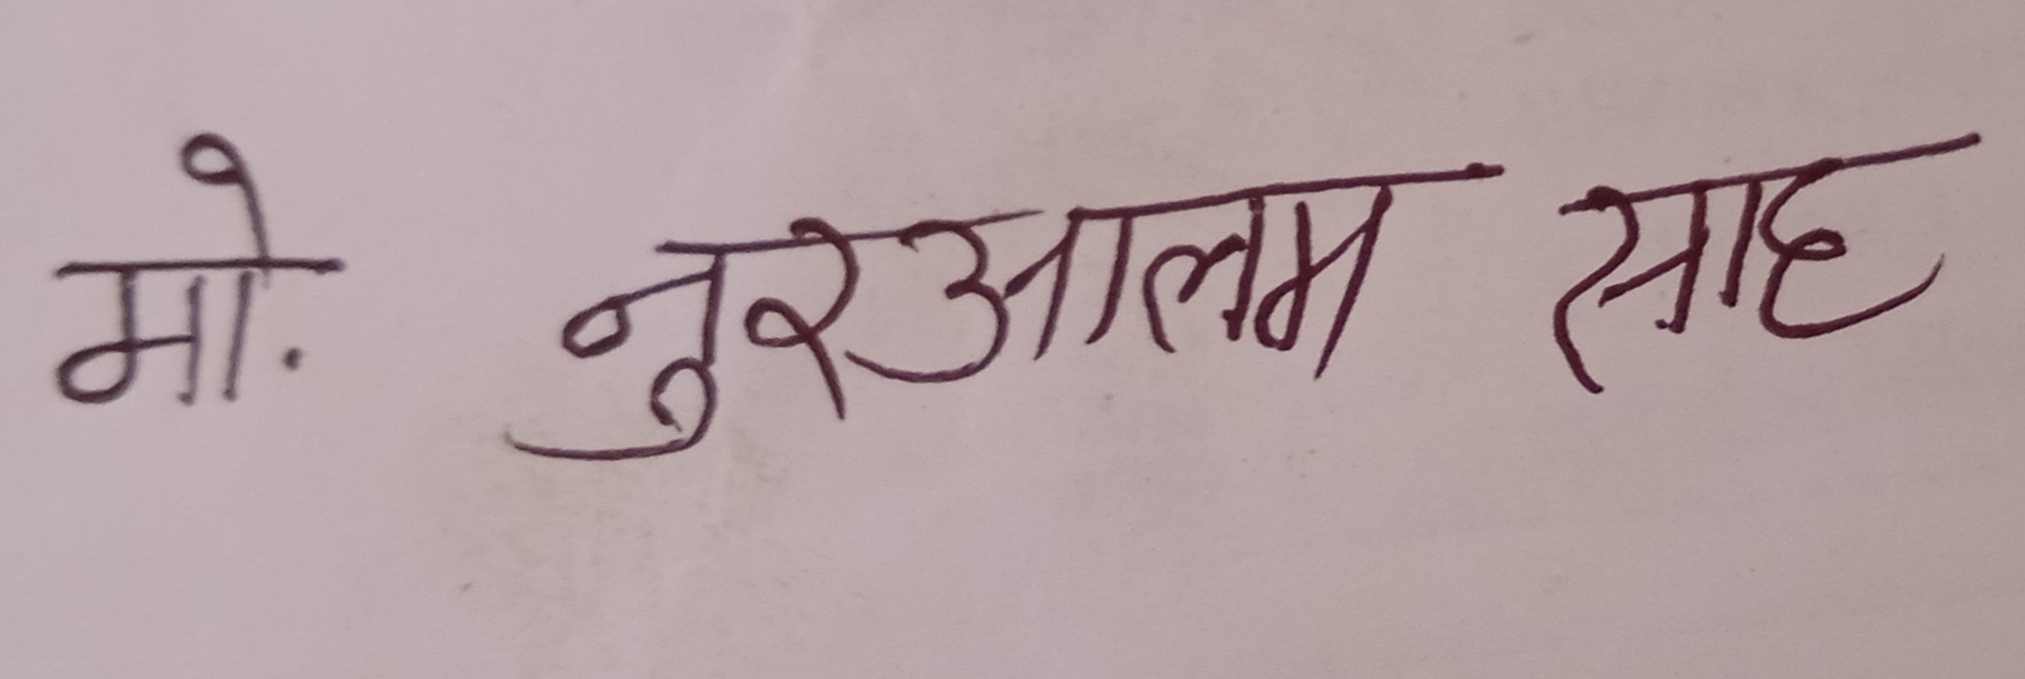 मो. नुरआलम साह